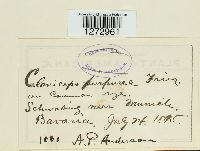 1272961
Claviceps purpurea Fries,
on common rye.
Schwabing near Munich
Bavaria July 24 1895
A.P. Anderson